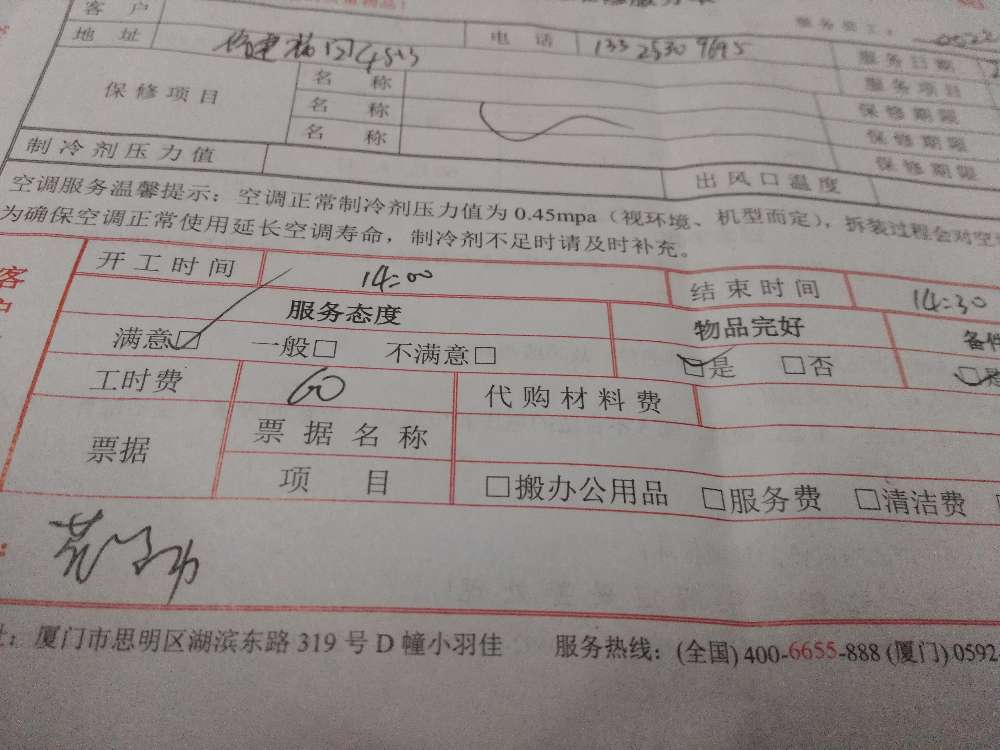 客 户
地 址 电 话 133 2530 9695 服务日期
保修项目 名 称 服务项目
名 称 保修期限
名 称 保修期限
制冷剂压力值 出风口温度 保修期限
空调服务温馨提示：空调正常制冷剂压力值为 0.45mpa（视环境、机型而定），拆装过程会对空
为确保空调正常使用延长空调寿命，制冷剂不足时请及时补充。
客户
开工时间 14:00 结束时间 14:30
服务态度 物品完好 备件
满意☑ 一般□ 不满意□ ☑是 □否
工时费 60 代购材料费
票据 票据名称
项 目 □搬办公用品 □服务费 □清洁费
址：厦门市思明区湖滨东路 319 号 D 幢小羽佳 服务热线：(全国) 400-6655-888 (厦门) 0592